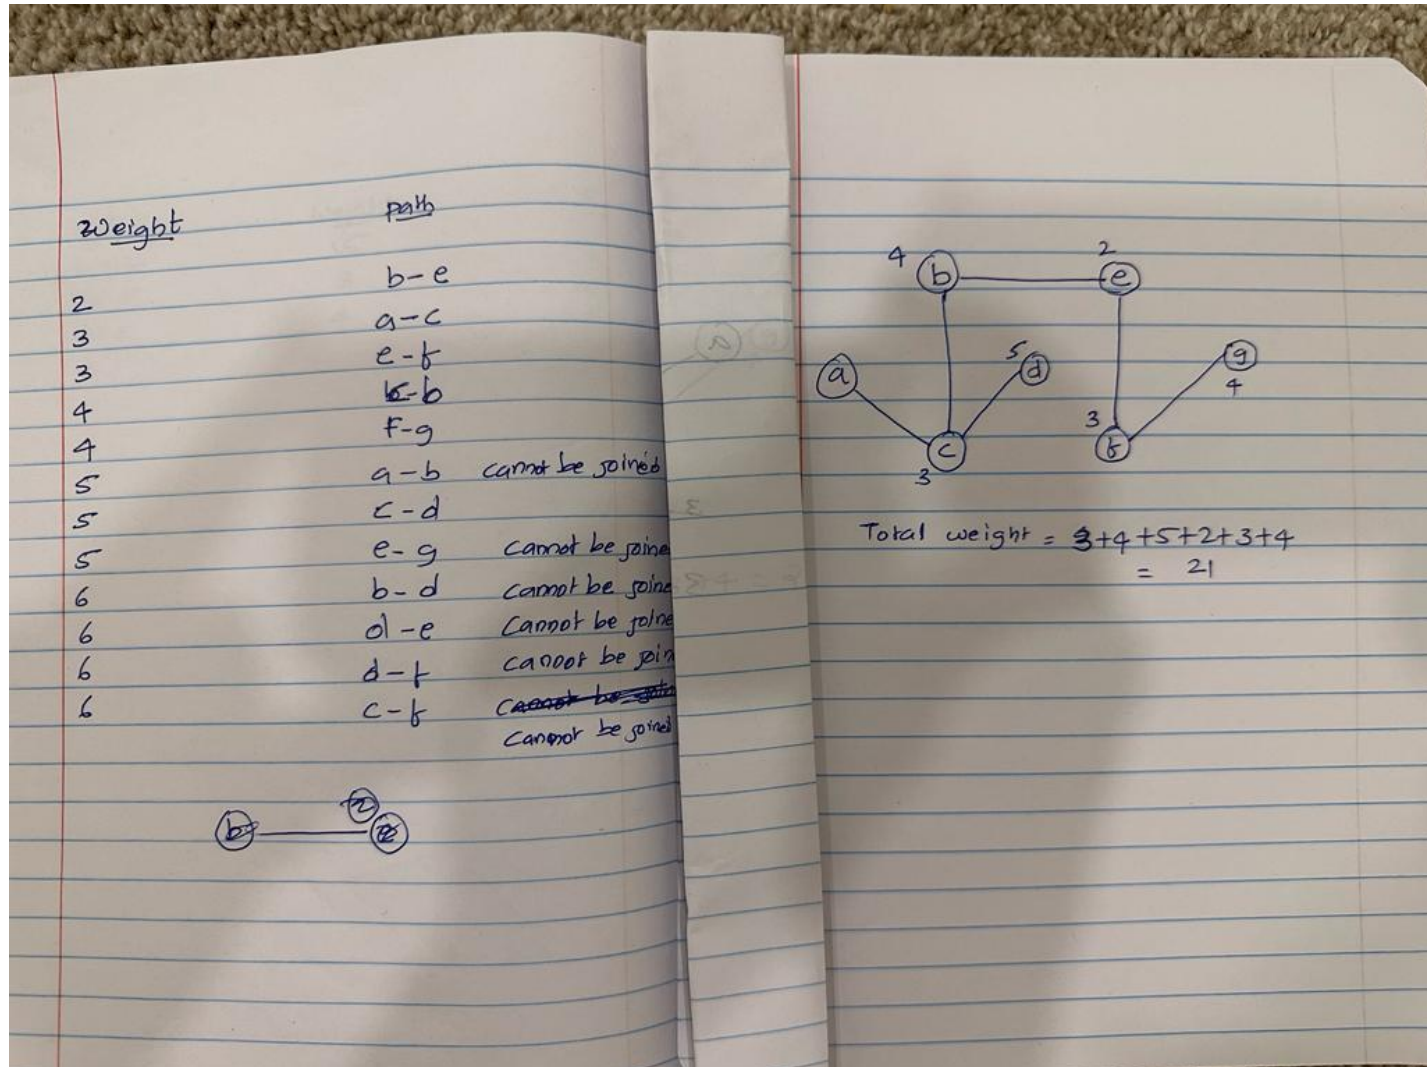 Weight path
2 b-e
3 a-c
3 e-f
4 c-b
4 f-g
5 a-b cannot be joined
5 c-d
5 e-g cannot be joine
6 b-d cannot be joine
6 d-e cannot be joine
6 d-f cannot be join
6 c-f
cannot be joined
b 2
4 b 2 e
a 5 d g
4
3 f
c
3
Total weight = 3+4+5+2+3+4
= 21